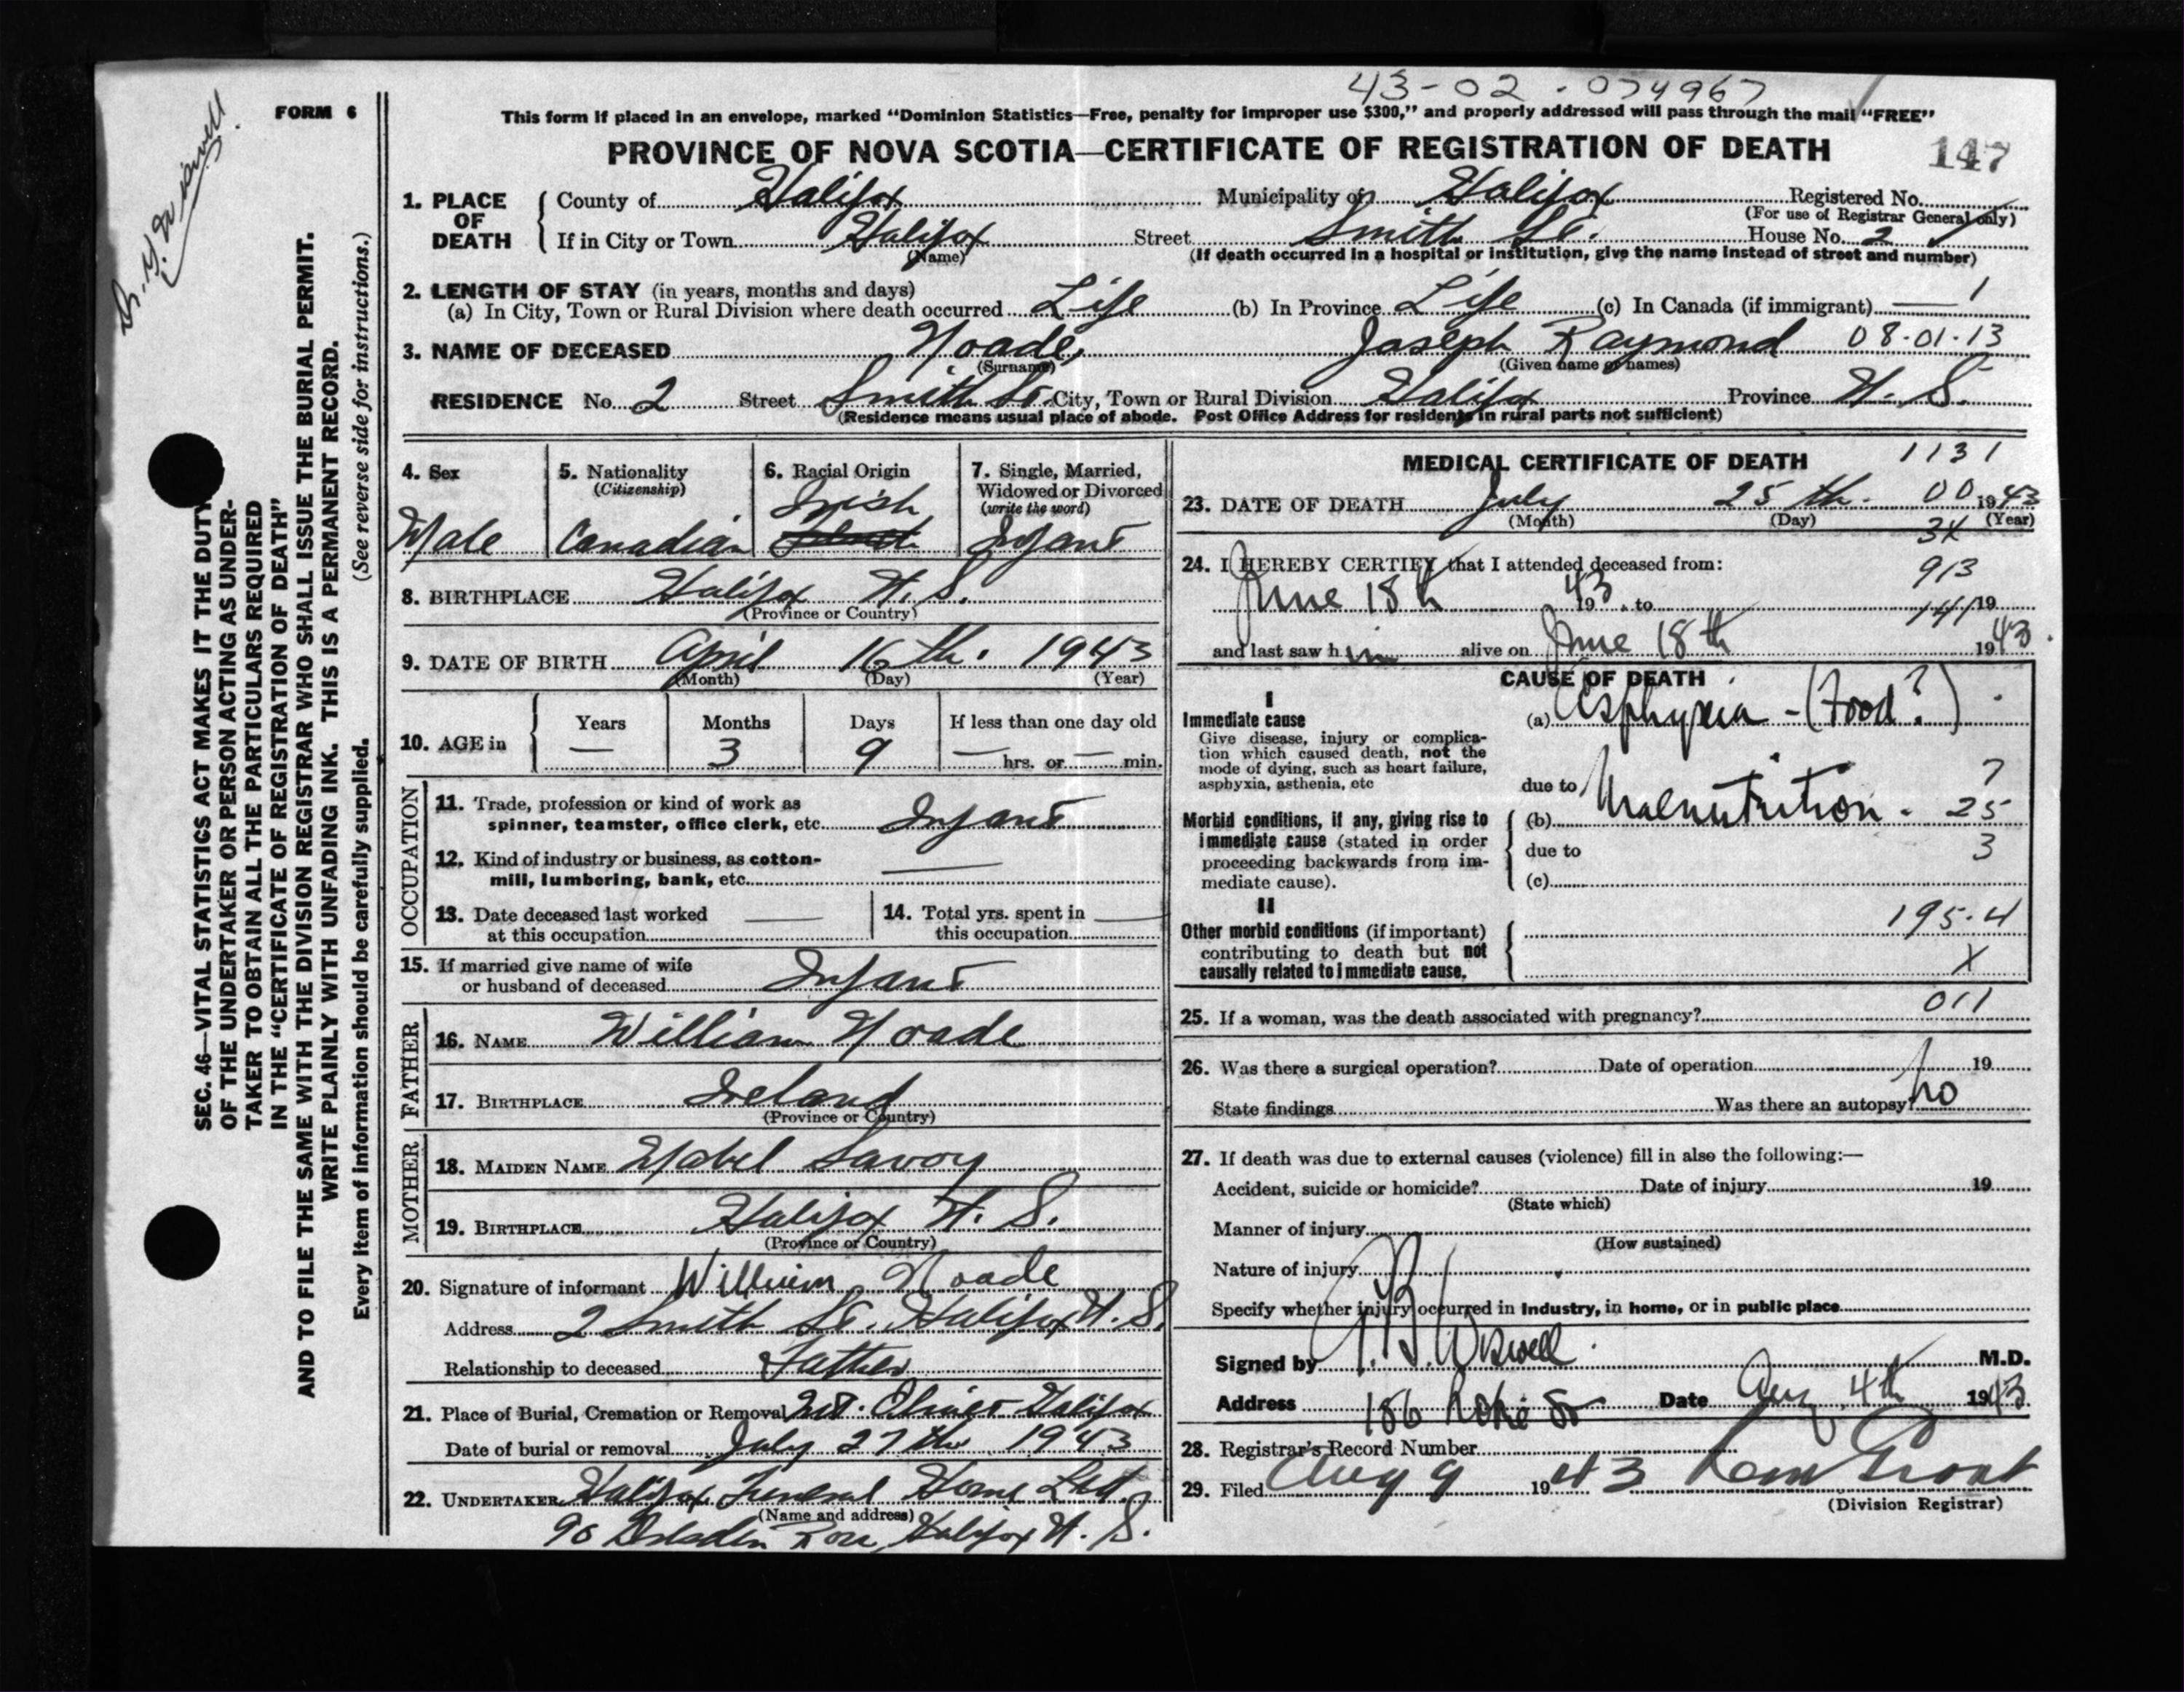 43-02-074967
FORM 6
Dr. Wiswell.
This form if placed in an envelope, marked "Dominion Statistics—Free, penalty for improper use $300," and properly addressed will pass through the mail "FREE"
PROVINCE OF NOVA SCOTIA—CERTIFICATE OF REGISTRATION OF DEATH 147
1. PLACE OF DEATH County of Halifax Municipality of Halifax Registered No.
(For use of Registrar General only)
If in City or Town Halifax Street Smith St. House No. 2
(Name) (If death occurred in a hospital or institution, give the name instead of street and number)
2. LENGTH OF STAY (in years, months and days)
(a) In City, Town or Rural Division where death occurred Life (b) In Province Life (c) In Canada (if immigrant) — 1
3. NAME OF DECEASED Noade, Joseph Raymond 08-01-13
(Surname) (Given name or names)
RESIDENCE No. 2 Street Smith St. City, Town or Rural Division Halifax Province N. S.
(Residence means usual place of abode. Post Office Address for residents in rural parts not sufficient)
4. Sex Male
5. Nationality (Citizenship) Canadian
6. Racial Origin Irish
7. Single, Married, Widowed or Divorced (write the word) Infant
8. BIRTHPLACE Halifax N. S.
(Province or Country)
9. DATE OF BIRTH April 16th. 1943
(Month) (Day) (Year)
10. AGE in Years — Months 3 Days 9 If less than one day old — hrs. or — min.
OCCUPATION
11. Trade, profession or kind of work as spinner, teamster, office clerk, etc. Infant
12. Kind of industry or business, as cotton-mill, lumbering, bank, etc. —
13. Date deceased last worked at this occupation —
14. Total yrs. spent in this occupation —
15. If married give name of wife or husband of deceased Infant
FATHER
16. NAME William Noade
17. BIRTHPLACE Ireland
(Province or Country)
MOTHER
18. MAIDEN NAME Mabel Savoy
19. BIRTHPLACE Halifax N. S.
(Province or Country)
20. Signature of informant William Noade
Address 2 Smith St. Halifax N. S.
Relationship to deceased Father
21. Place of Burial, Cremation or Removal Mt. Olivet Halifax
Date of burial or removal July 27th 1943
22. UNDERTAKER Halifax Funeral Home Ltd
(Name and address)
Row, Halifax N. S.
MEDICAL CERTIFICATE OF DEATH 1131
23. DATE OF DEATH July 25th. 00 1943
(Month) (Day) (Year)
3X
24. I HEREBY CERTIFY that I attended deceased from:
913
June 18th 1943, to 19
141
and last saw him alive on June 18th 1943.
CAUSE OF DEATH
I
Immediate cause
Give disease, injury or complication which caused death, not the mode of dying, such as heart failure, asphyxia, asthenia, etc
(a) Asphyxia - (Food?)
due to
7
Morbid conditions, if any, giving rise to immediate cause (stated in order proceeding backwards from immediate cause).
(b) Malnutrition. 25
due to 3
(c)
II
Other morbid conditions (if important) contributing to death but not causally related to immediate cause.
195.4
X
011
25. If a woman, was the death associated with pregnancy?
26. Was there a surgical operation? Date of operation 19
State findings Was there an autopsy? no
27. If death was due to external causes (violence) fill in also the following:—
Accident, suicide or homicide? Date of injury 19
(State which)
Manner of injury
(How sustained)
Nature of injury
Specify whether injury occurred in industry, in home, or in public place
Signed by Wiswell M.D.
Address 186 St Date Aug. 4th 1943
28. Registrar's Record Number
29. Filed Aug 9 1943
(Division Registrar)
SEC. 46—VITAL STATISTICS ACT MAKES IT THE DUTY
OF THE UNDERTAKER OR PERSON ACTING AS UNDER-
TAKER TO OBTAIN ALL THE PARTICULARS REQUIRED
IN THE "CERTIFICATE OF REGISTRATION OF DEATH"
AND TO FILE THE SAME WITH THE DIVISION REGISTRAR WHO SHALL ISSUE THE BURIAL PERMIT.
WRITE PLAINLY WITH UNFADING INK. THIS IS A PERMANENT RECORD.
Every item of information should be carefully supplied. (See reverse side for instructions.)